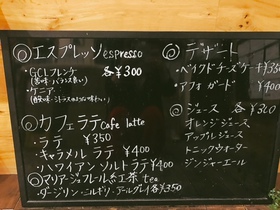 ◎エスプレッソ espresso
・GCLフレンチ 各¥300
(苦味・バランス良い)
・ケニア
(酸味・シトラスのような味わい)
◎カフェラテ cafe latte
・ラテ ¥350
・キャラメルラテ ¥400
・ハワイアンソルトラテ ¥400
◎マリアージュフレール紅茶 tea
・ダージリン・ニルギリ・アールグレイ各¥350
◎デザート
・ベイクドチーズケーキ¥350
・アフォガード ¥400
◎ジュース 各¥300
オレンジジュース
アップルジュース
トニックウォーター
ジンジャーエール